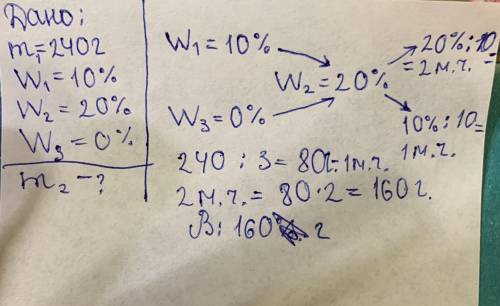 Дано:
m₁=240г
W₁=10%
W₂=20%
W₃=0%
m₂-?
W₁=10%
W₂=20%
W₃=0%
20%:10
=2м.ч.
10%:10=
1м.ч.
240:3=80г-1м.ч.
2м.ч.=80·2=160г.
В:160 г